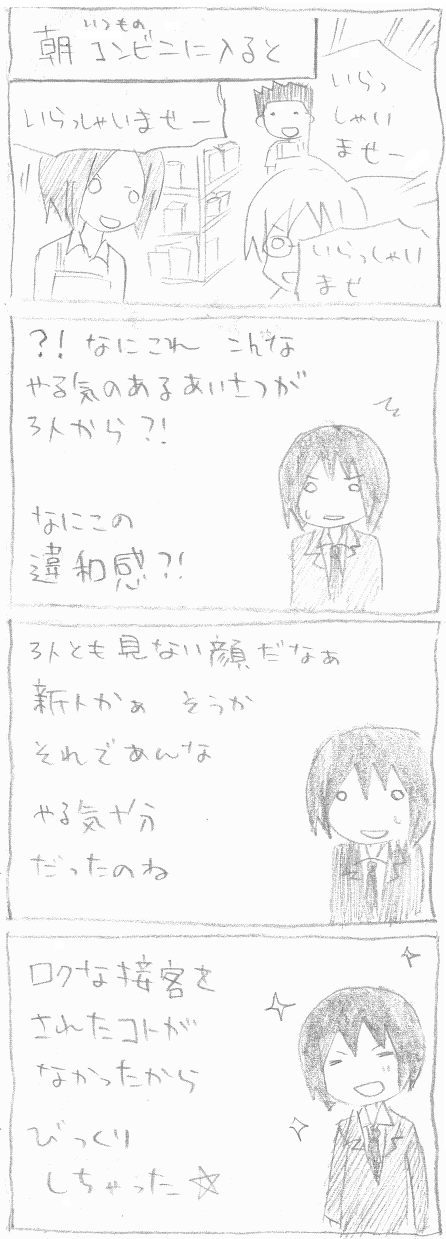 いつもの
朝 コンビニに入ると
いらっ
しゃい
ませー
いらっしゃいませー
いらっしゃい
ませ
?! なにこれ こんな
やる気のあるあいさつが
3人から?!
なにこの
違和感?!
3人とも見ない顔だなぁ
新トかぁ そうか
それであんな
やる気十分
だったのね
ロクな接客を
されたコトが
なかったから
びっくり
しちゃった☆